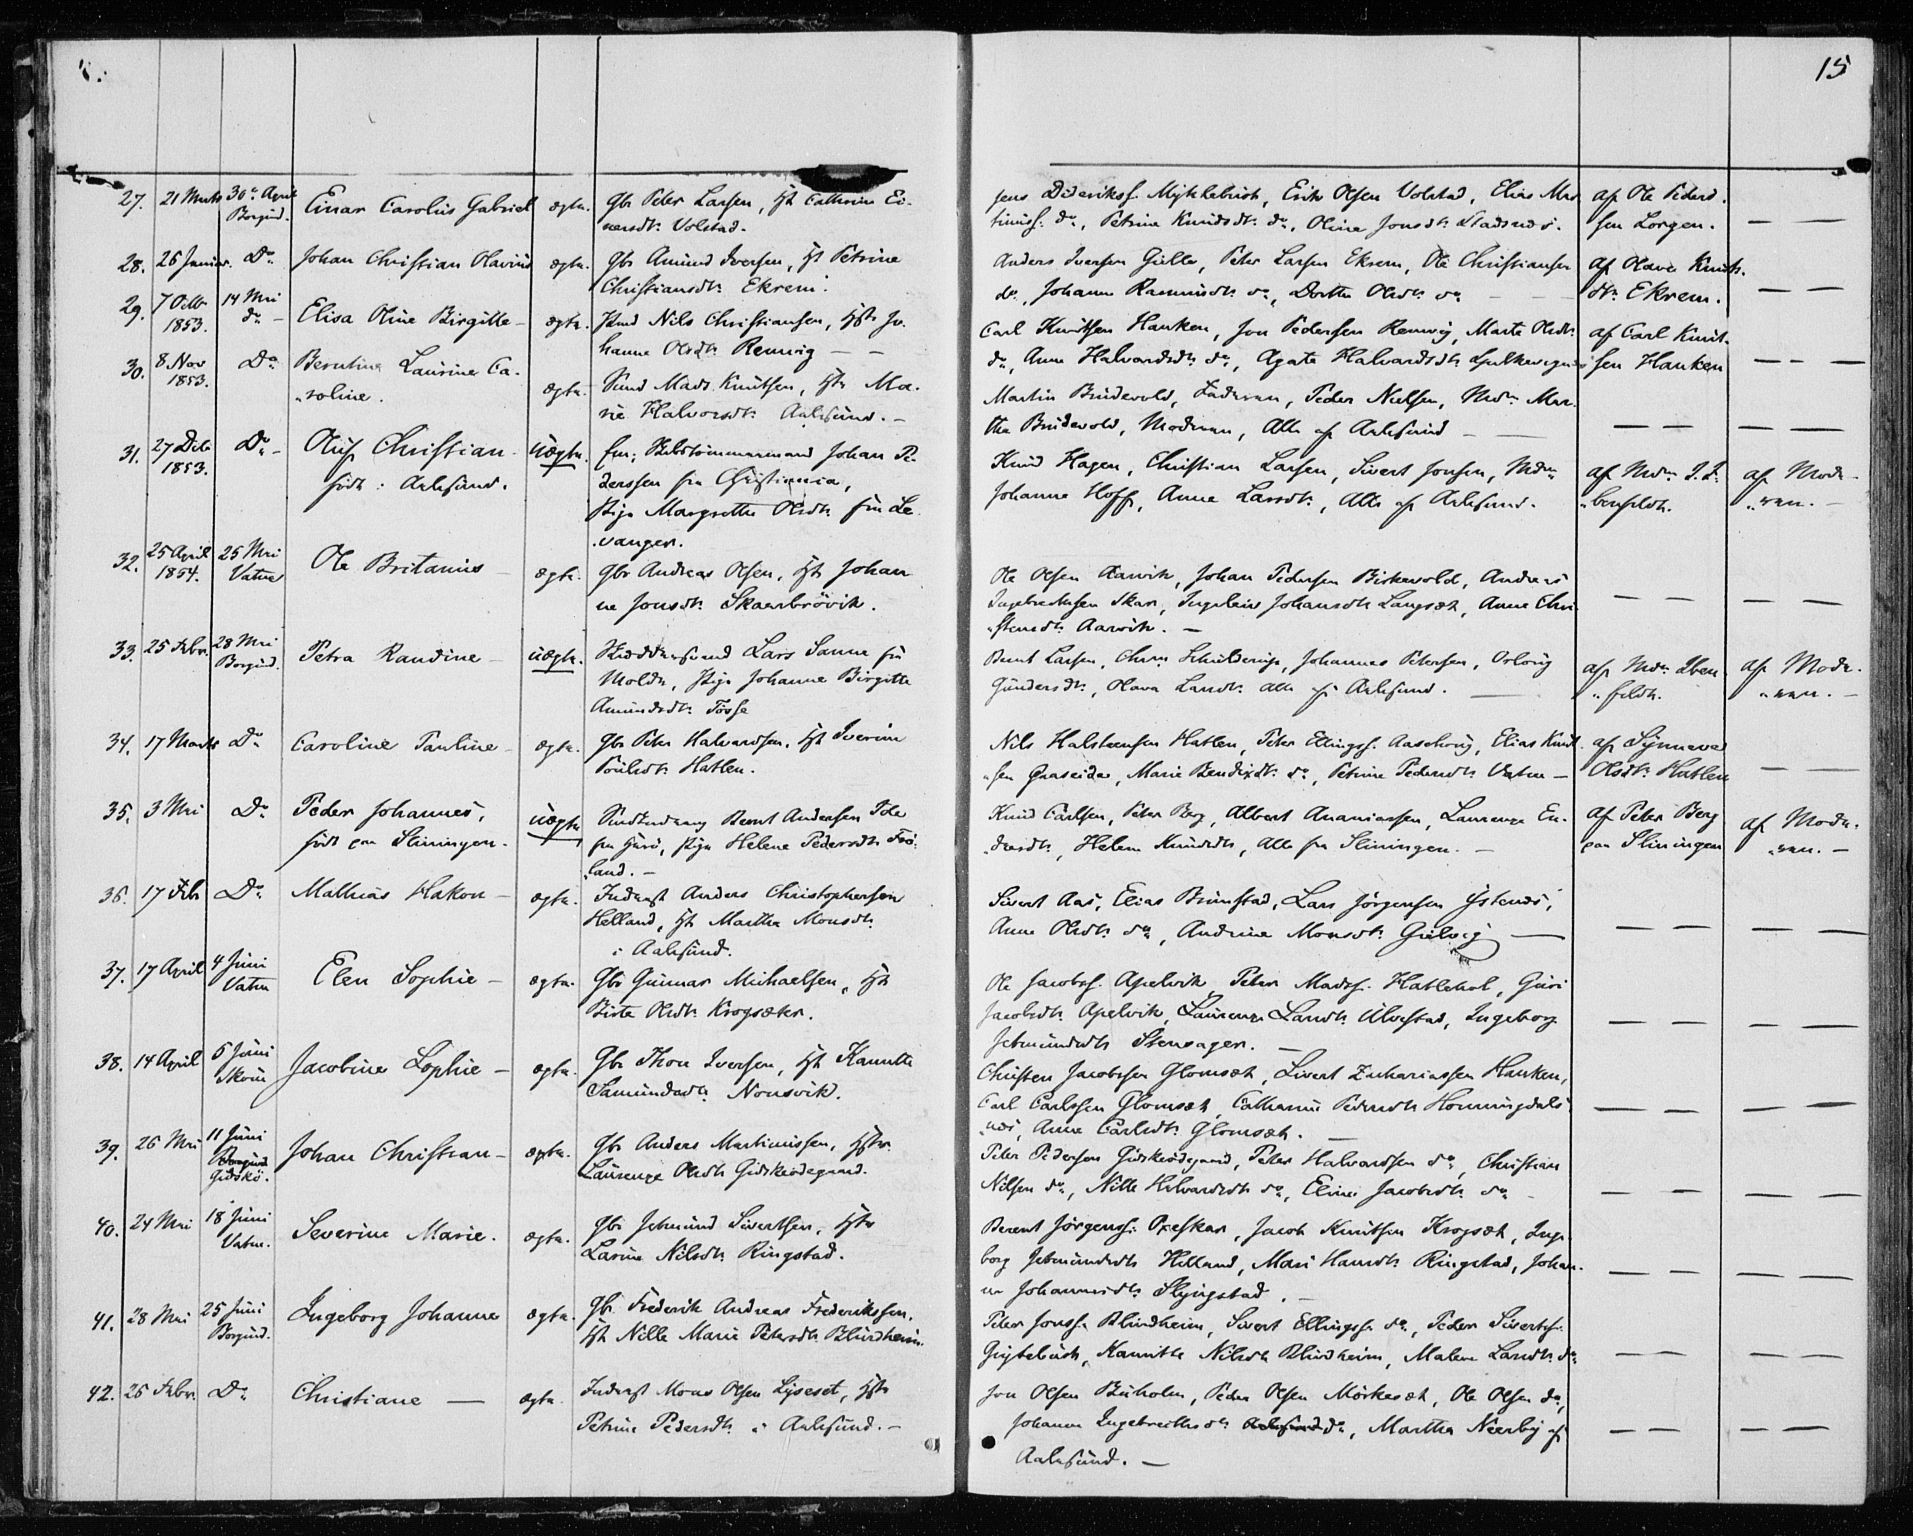 15
27. 21 Marts 30te April Borgund. Einar Carolus Gabriel ægte. Gbr Peter Larsen, Ht Cathrine Ei-
nersdtr Volstad.
Jens Dideriksf. Myklebust, Erik Olsen Volstad, Elias Mar-
tinusf. do, Petrine Knudsdtr do, Oline Jonsdtr Stadsnæs.
af Ole Peder-
sen Lorgen. — —
28. 26 Januar. Do Johan Christian Olavius ægte. Gbr Amund Iversen, Ht Petrine
Christiansdtr Ekrem.
Anders Iversen Gulle, Peter Larsen Ekrem, Ole Christiansen
do, Johanne Rasmusdtr do, Dorthe Olsdtr do — —
af Olave Knuts-
dtr Ekrem. — —
29. 7 Octbr 1853. 14 Mai do — Elisa Oline Birgitte — ægte. Nils Christiansen, Hst Jo-
hanne Olsdtr Remvig — —
Carl Knutsen Hanken, Jon Pedersen Remvig, Marte Olsdtr
do, Anne Halvardsdtr do, Agate Halvardsdtr
af Carl Knut-
sen Hanken — —
30. 8 Nov 1853. Do Berntine Laurine Ca-
roline. ægte. Mads Knutsen, Hst Ma-
rie Halvorsdtr Aalesund. —
Martin Brudevold, Faderen, Peder Nielsen, Mdm Mar-
the Brudevold, Moderen, Alle af Aalesund — — — — — —
31. 27 Decbr 1853. Do — Oluf Christian
født i Aalesund. uægte. Skibstømmermand Johan Pe-
derssen fra Christiania,
Pige Margrethe Olsdtr fra Le-
vanger.
Knud Hagen, Christian Larsen, Sivert Jonsen, Mdm
Johanne Hoff, Anne Larsdtr, Alle af Aalesund.
af Mdm I.
benfeldt. af Mode-
ren. —
32. 25 April 1854. 25 Mai Vatne Ole Britanius — ægte. Gbr Andreas Olsen, Ht Johan-
ne Jonsdtr Skaarbrøvik.
Ole Olsen Aarvik, Johan Pedersen Birkevold, Anders
Ingebrechtsen Skar, Johansdtr Langsæt, Anne Chri-
stensdtr Aarvik. — — — — —
33. 25 Febr. 28 Mai Borgund. Petra Randine — uægte. Skræddersvend Lars Sanne fra
Molde, Pige Johanne Birgitte
Amundsdtr Fosse
Bernt Larsen, Chren Schulderup, Johannes Petersen,
Gundersdtr, Olava Larsdtr alle fra Aalesund. —
af Mdm Iben-
feldt. af Mode-
ren. —
34. 17 Marts Do Caroline Pauline — ægte. Gbr Peter Halvardsen, Ht Iverine
Poulsdtr Hatlen.
Nils Halsteensen Hatlen, Peter Ellingsf. Aasekrug, Elias Knud-
sen Graseide, Marie Bendixdtr do, Petrine Pedersdtr Vatne —
af Synneva
Olsdtr Hatlen — —
35. 3 Mai Do Peder Johannes,
født paa Slinningen. uægte. Bernt Andersen
fra Gurø, Pige Helene Pedersdtr Frø-
land. —
Knud Carlsen, Peter Berg, Albert Ananiassen, Laurenze En-
dresdtr, Helene Knudsdtr, Alle fra Slinningen. —
af Peter Berg
paa Slinningen af Mode-
ren. —
36. 17 Febr Do Mathias Hakon — ægte. Inderst Anders Christophersen
Helland, Ht Marthe Monsdtr
i Aalesund.
Sivert Aas, Elias Brunstad, Lars Jørgensen Ystenæs,
Anne Olsdtr do, Andrine Monsdtr Gulvig — — — — —
37. 17 April 4 Juni Vatne Elen Sophie — ægte. Gbr Gunnar Michaelsen, Ht
Birte Olsdtr Krogsæter.
Ole Jacobsf. Apelvik, Peter Madsf. Hatlehol, Guri
Jacobsdtr Apelvik, Laurenze Larsdtr Ulvestad, Ingeborg
Jetmundsdtr Stensager. — — — — —
38. 14 April 5 Juni Skou Jacobine Sophie — ægte. Gbr Thore Iversen, Ht Kanutte
Samundsdtr Nonsvik.
Christen Jacobsen Glomsæt, Sivert Zachariassen Hanken,
Carl Carlssen Glomsæt, Cathrine Pedersdtr Honningdals-
næs, Anne Carlsdtr Glomsæt. — — — — —
39. 26 Mai 11 Juni Borgund Gidskø. Johan Christian — ægte. Gbr Anders Martinussen, Hst
Laurenze Olsdtr Gidskeødegaard.
Peter Pedersen Gidskeødegaard, Peter Halvardsen do, Christian
Nilsen do, Nille Halvardsdtr do, Eline Jacobsdtr do — — — — —
40. 24 Mai 18 Juni Vatne. Severine Marie. ægte. Gbr Jetmund Sivertsen, Hst
Larine Nilsdtr Ringstad.
Berent Jørgensf. Opeskar, Jacob Knutsen Krogsæt, Inge-
borg Jetmundsdtr Helland, Mari Hansdtr Ringstad, Johan-
ne Johannesdtr Slyngstad. — — — — —
41. 28 Mai 25 Juni Borgund. Ingeborg Johanne ægte. Gbr. Frederik Andreas Frederikssen,
Ht Nille Marie Petersdtr Blindheim.
Peter Jonsf. Blindheim, Sivert Ellingsf. do, Peder Sivertsf.
Kanutte Nilsdtr Blindheim, Malene Larsdtr do — — — —
42. 26 Febr. Do Christiane — ægte. Inderst Mons Olsen Lyseset, Hst
Petrine Pedersdtr i Aalesund. —
Jon Olsen Buholm, Peder Olsen Mørkesæt, Ole Olsen do,
Johanne Ingebrechtsdtr Aalesund do, Marthe Neerbø af
Aalesund. — — — — —